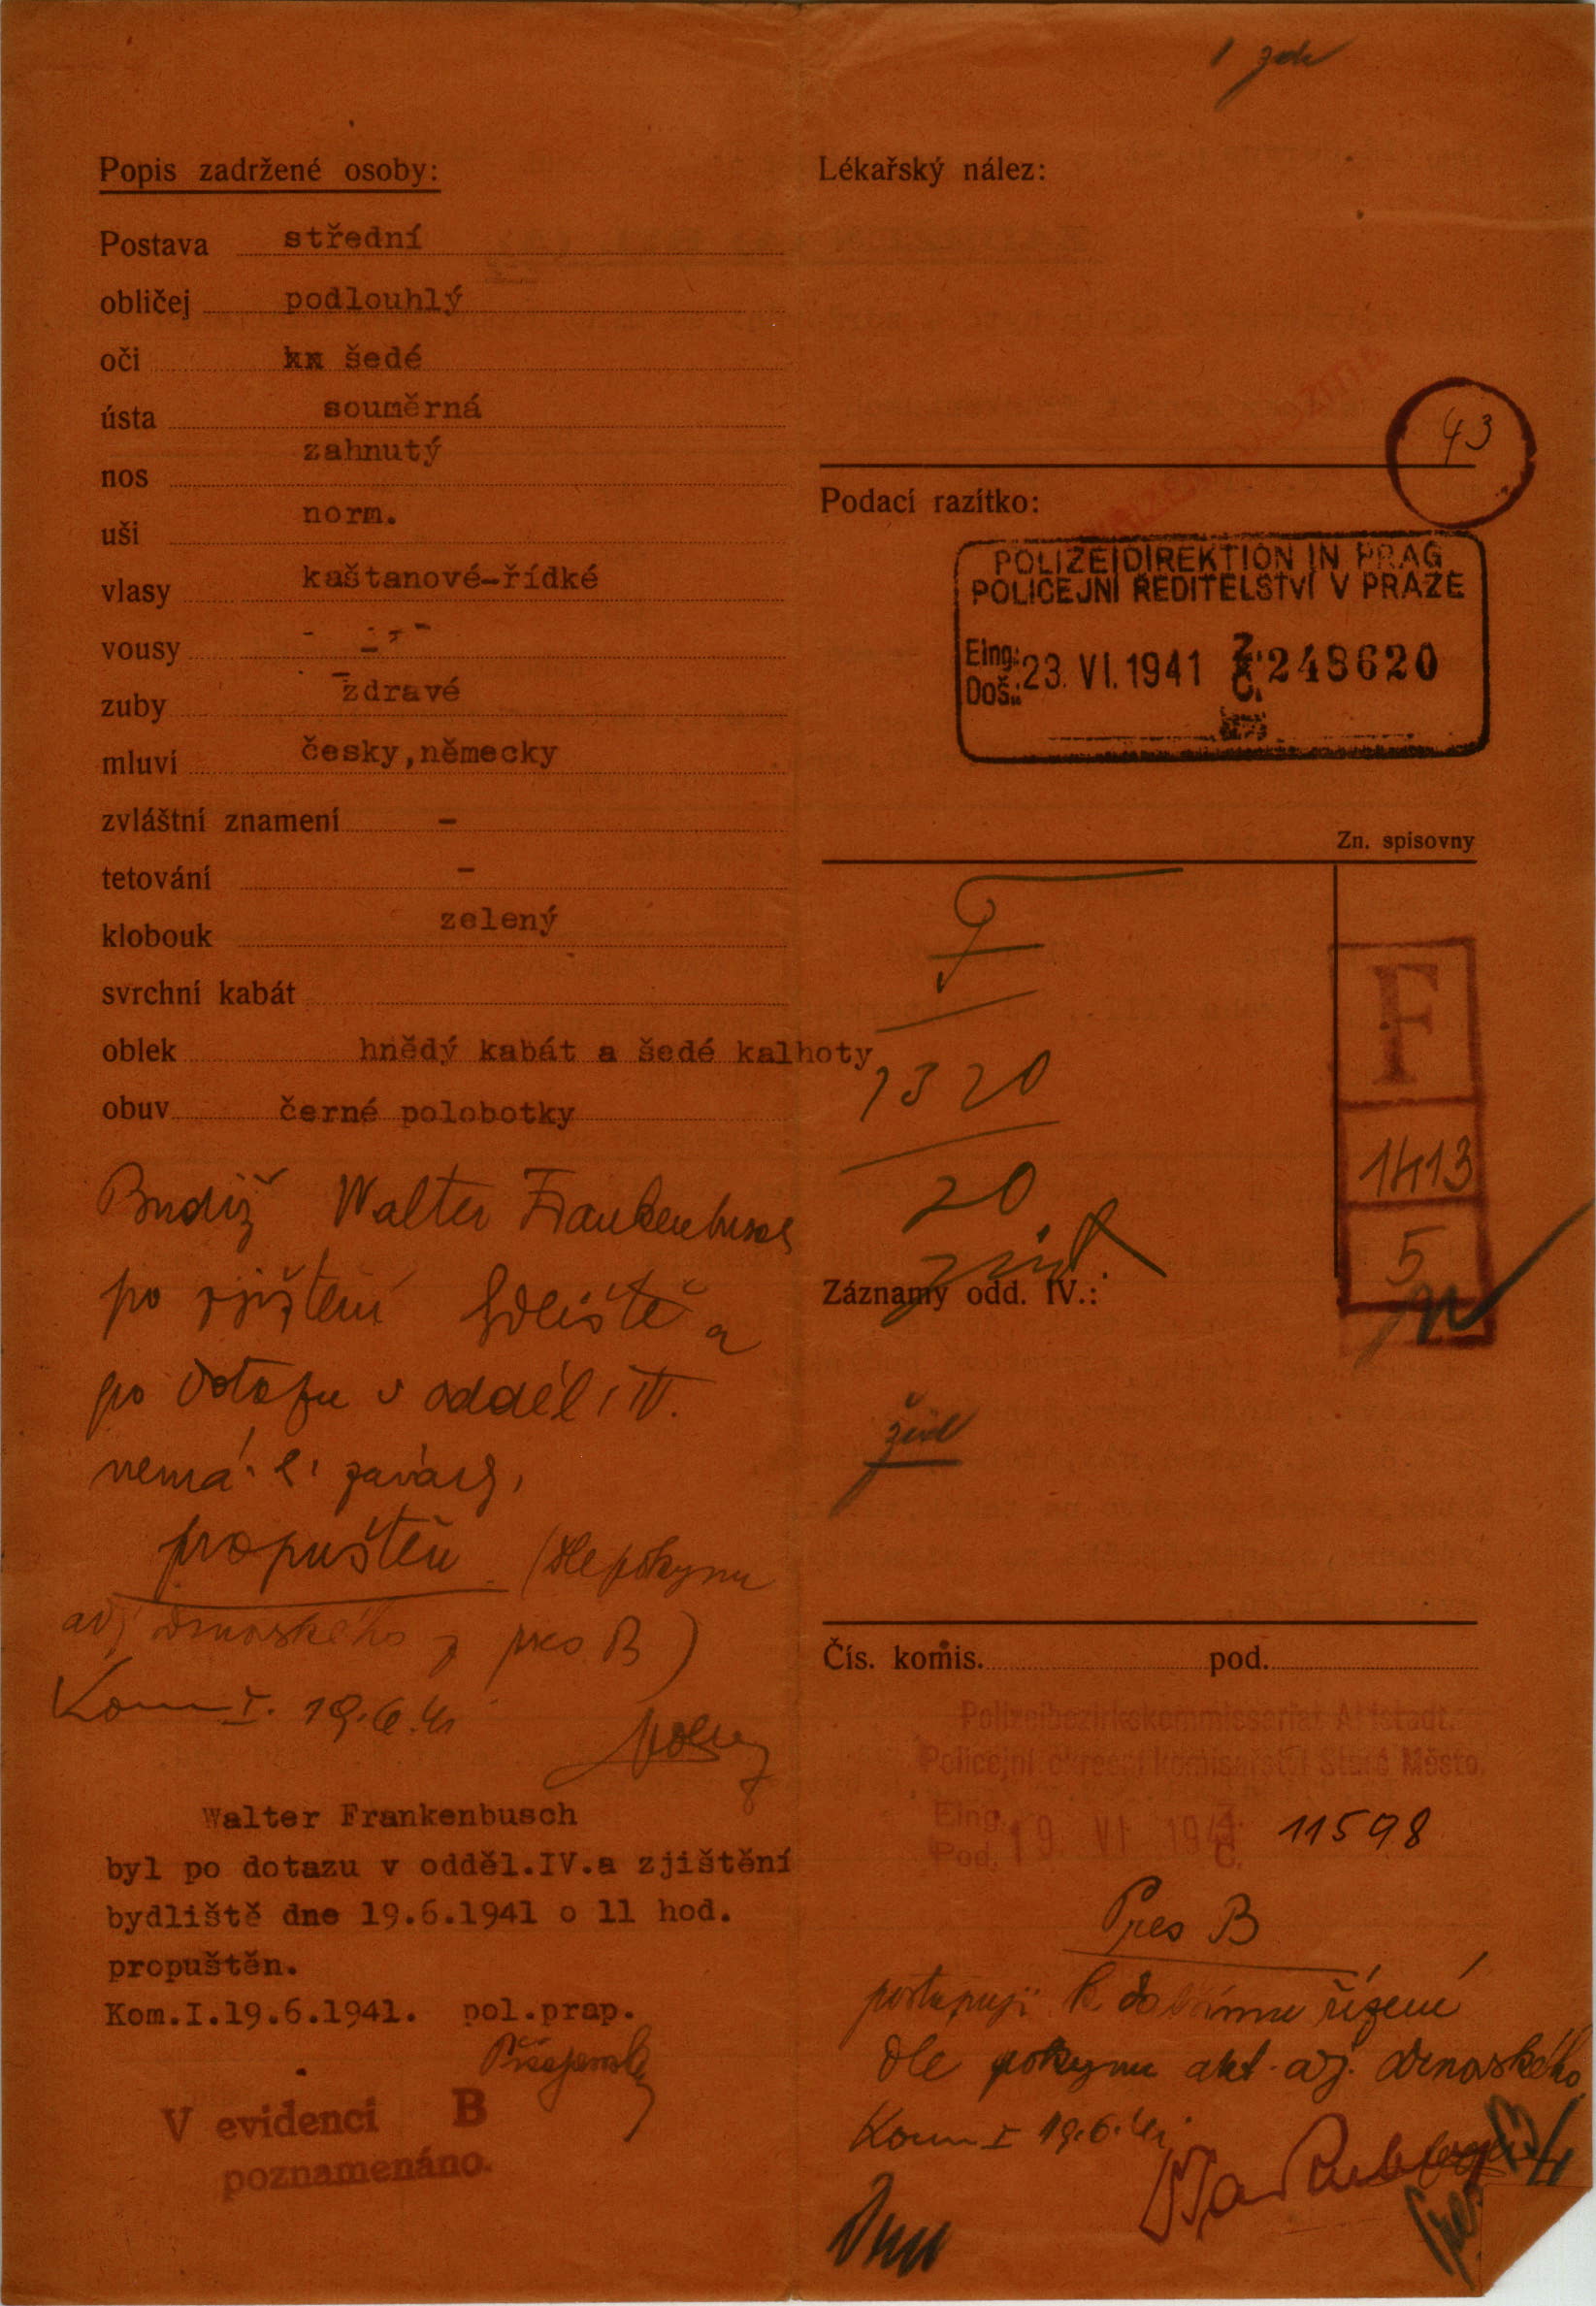 Popis zadržené osoby:
Postava střední
obličej podlouhlý
oči šedé
ústa souměrná
nos zahnutý
uši norm.
vlasy kaštanové-řídké
vousy - - -
zuby zdravé
mluví česky,německy
zvláštní znamení -
tetování -
klobouk zelený
svrchní kabát
oblek hnědý kabát a šedé kalhoty
obuv černé polobotky
Budiž Walter Frankenbusch
po zjištění bydliště a
po dotazu v odděl. IV.
nemá-li závady,
propuštěn (dle pokynu
adj. Drnovského z pres B)
Kom I. 19.6.41
Walter Frankenbusch
byl po dotazu v odděl.IV.a zjištění
bydliště dne 19.6.1941 o 11 hod.
propuštěn.
Kom.I.19.6.1941. pol.prap.
V evidenci B
poznamenáno.
Lékařský nález:
43
Podací razítko:
POLIZEIDIREKTION IN PRAG
POLICEJNÍ ŘEDITELSTVÍ V PRAZE
Eing.: Doš.: 23. VI. 1941 Z. Č. 248620
Zn. spisovny
F
1320
1413
20
5
Záznamy odd. IV.:
žid
Čís. komis. pod.
Polizeibezirkskommissariat Altstadt.
Policejní okresní komisařství Staré Město.
Eing. Pod. 19. VI. 194 Z. Č. 11598
Pres B
postupuji k dalšímu řízení
dle pokynu akt. adj. Drnovského
Kom I 19.6.41